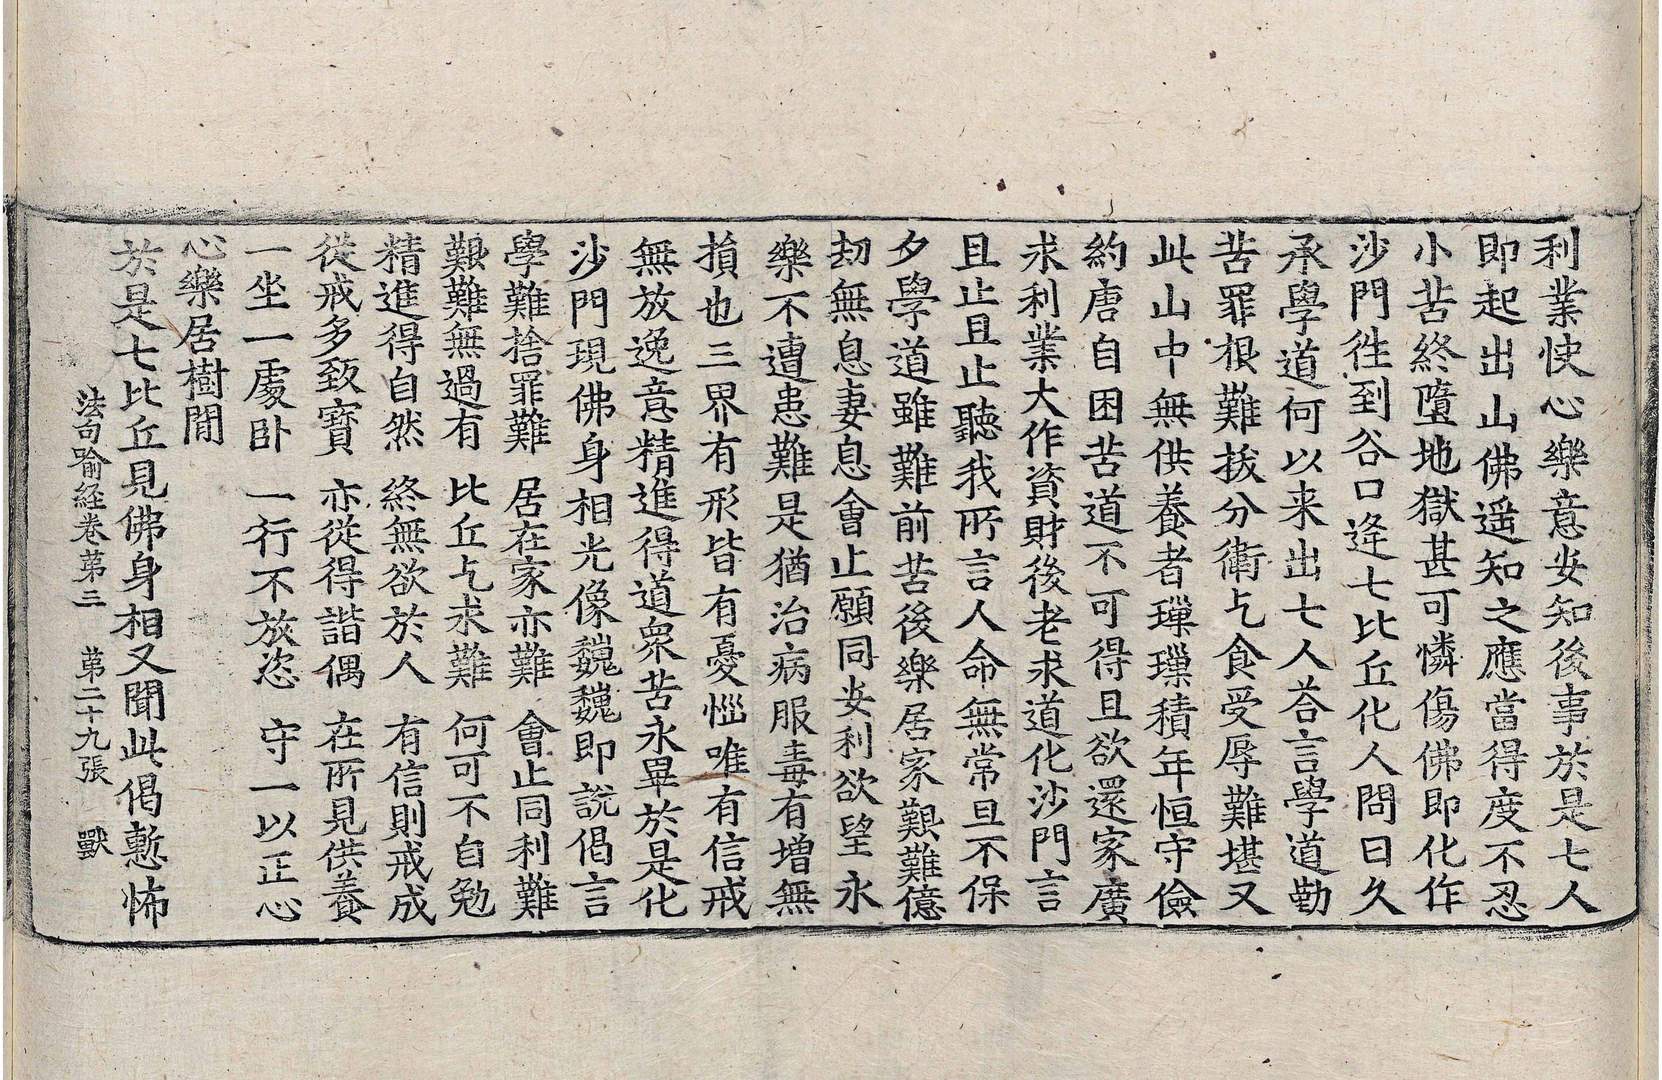 利業快心樂意安知後事於是七人
即起出山佛遥知之應當得度不忍
小苦終墮地獄甚可憐傷佛即化作
沙門徃到谷口逢七比丘化人問曰久
承學道何以来出七人荅言學道勤
苦罪根難拔分衛乞食受辱難堪又
此山中無供養者璅璅積年恒守儉
約唐自困苦道不可得且欲還家廣
求利業大作資財後老求道化沙門言
且止且止聽我所言人命無常旦不保
夕學道雖難前苦後樂居家艱難億
劫無息妻息會止願同安利欲望永
樂不遭患難是猶治病服毒有增無
損也三界有形皆有憂惱唯有信戒
無放逸意精進得道衆苦永畢於是化
沙門現佛身相光像魏魏即說偈言
學難捨罪難 居在家亦難 會止同利難
艱難無過有 比丘乞求難 何可不自勉
精進得自然 終無欲於人 有信則戒成
從戒多致寶 亦從得諧偶 在所見供養
一坐一處卧 一行不放恣 守一以正心
心樂居樹間
於是七比丘見佛身相又聞此偈慙怖
法句喻経卷第三 第二十九張 獸